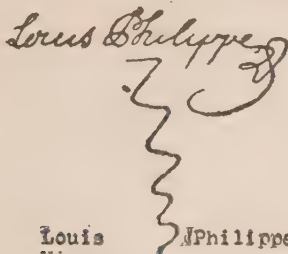 Louis Philippe
Louis Philippe